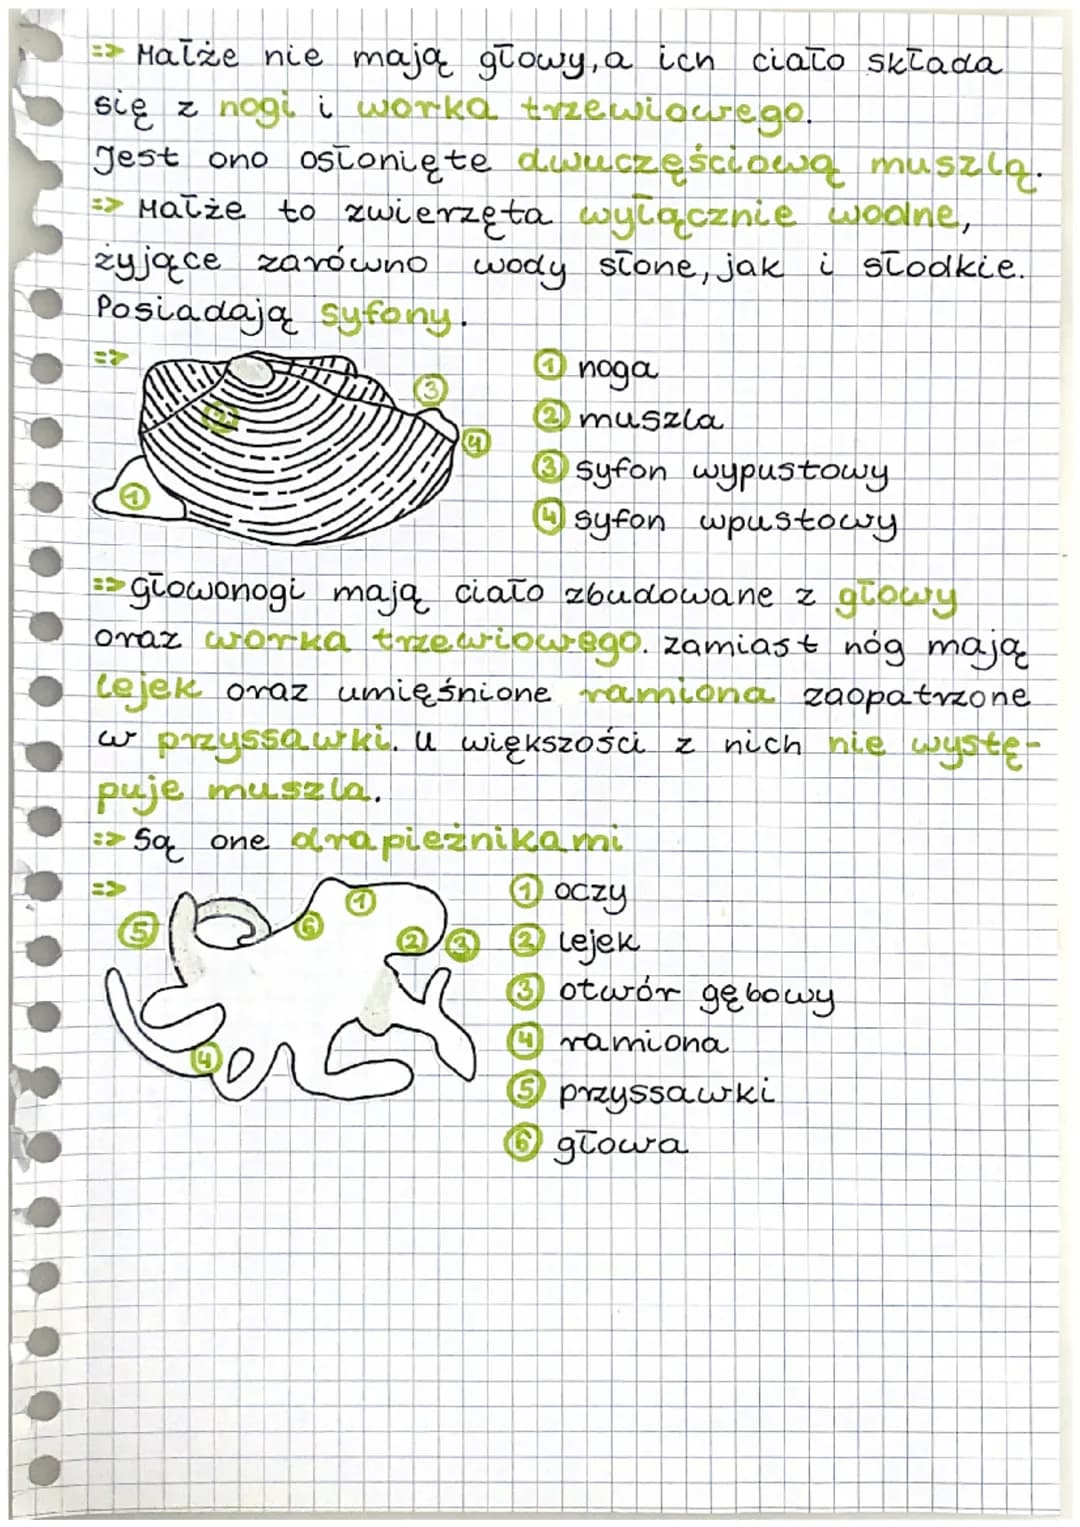 => Małże nie mają głowy, a ich ciało składa
się z nogi i worka trzewiowego.
Jest ono osłonięte dwuczęściową muszlą.
=> Małże to zwierzęta wyłącznie wodne,
żyjące zarówno wody słone, jak i słodkie.
Posiadają syfony.
=>
2
3
4
1
1 noga
2 muszla
3 syfon wypustowy
4 syfon wpustowy
=> głowonogi mają ciało zbudowane z głowy
oraz worka trzewiowego. zamiast nóg mają
lejek oraz umięśnione ramiona zaopatrzone
w przyssawki. U większości z nich nie wystę-
puje muszla.
=> Są one drapieżnikami
=>
5
6
1
2
3
4
1 oczy
2 lejek
3 otwór gębowy
4 ramiona
5 przyssawki
6 głowa